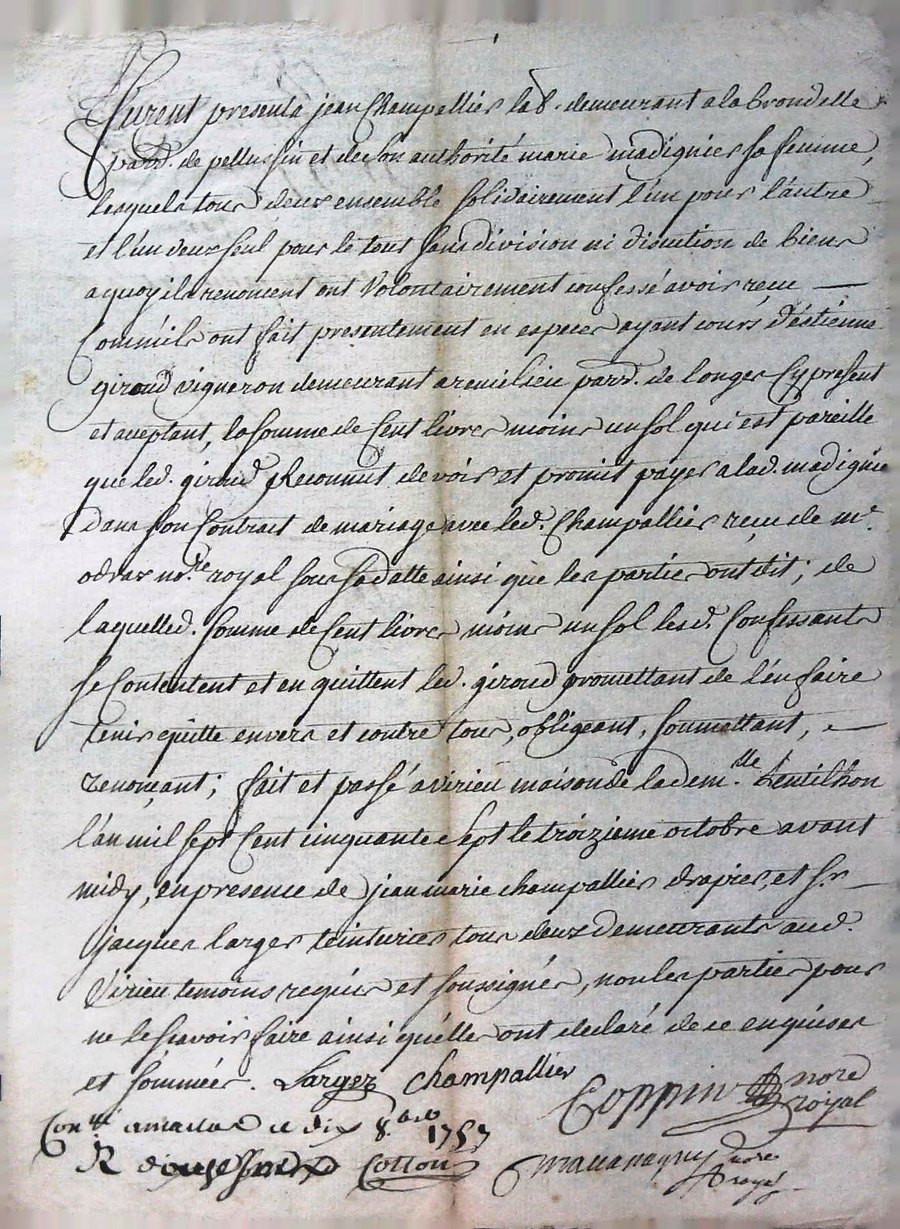 Furent presents jean Champallier lab.r demeurant a la brondelle
parr. de pellussin et de son authorité marie madignier sa femme,
lesquels tous deux ensemble solidairement l'un pour l'autre
et l'un deux seul pour le tout sans division ni discution de biens
a quoy ils renoncent ont volontairement confessé avoir reçu —
Comm'ils ont fait presentement en especes ayant cours d'éstienne
giroud vigneron demeurant a remilieu parr. de longes Cy present
et aceptant, la somme de Cent livres moins un sol qui est pareille
que led. giroud Reconnut devoir et promit payer a lad. madignier
dans son Contrat de mariage avec led. Champallier reçu de m.e
odras no.re royal sous sa datte ainsi que les parties ont dit; de
laquelled. somme de Cent livres moins un sol lesd. Confessants
se Contentent et en quittent led. giroud promettant de l'en faire
tenir quitte envers et contre tous, obligeant, soumettant, —
renonçant; fait et passé a virieu maison de la dem.lle
l'an mil sept Cent cinquante sept le troizieme octobre avant
midy, en presence de jean marie champallier drapier, et s.r —
jacques larger teinturier tous deux demeurants aud.
Virieu temoins requis et soussignés, non les parties pour
ne le sçavoir faire ainsi qu'elles ont declaré de ce enquises
et sommées. Larger Champallier
Coppin nore royal
Con.llé a ce dix 8.bre 1757
R douze s Cotton
nore royal